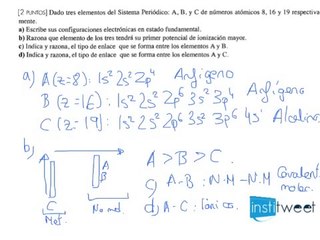 [2 PUNTOS] Dado tres elementos del Sistema Periódico: A, B, y C de números atómicos 8, 16 y 19 respectiva
mente.
a) Escribe sus configuraciones electrónicas en estado fundamental.
b) Razona que elemento de los tres tendrá su primer potencial de ionización mayor.
c) Indica y razona, el tipo de enlace que se forma entre los elementos A y B.
d) Indica y razona, el tipo de enlace que se forma entre los elementos A y C.
a) A (z=8): 1s² 2s² 2p⁴ Anfígeno
B (z=16): 1s² 2s² 2p⁶ 3s² 3p⁴ Anfígeno
C (z=19): 1s² 2s² 2p⁶ 3s² 3p⁶ 4s¹ Alcalino
b) A > B > C.
A
B
C
Met. No met
c) A-B: N.M-N.M Covalent
molec.
d) A-C: Iónicos.
institweet